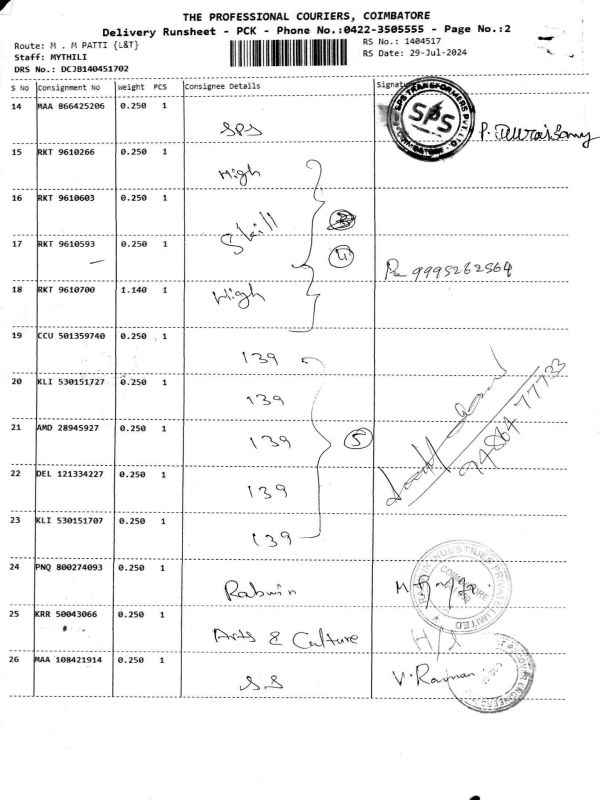 THE PROFESSIONAL COURIERS, COIMBATORE
Delivery Runsheet - PCK - Phone No.:0422-3505555 - Page No.:2
Route: M . M PATTI {L&T}
RS No.: 1404517
Staff: MYTHILI
RS Date: 29-Jul-2024
DRS No.: DCJB140451702
S No Consignment No Weight PCS Consignee Details Signature
14 MAA 866425206 0.250 1 SPS
SPS TRANSFORMERS PVT. LTD. SPS COIMBATORE
15 RKT 9610266 0.250 1 High
16 RKT 9610603 0.250 1
Skill
17 RKT 9610593 0.250 1 4 9995262564
18 RKT 9610700 1.140 1 High
19 CCU 501359740 0.250 1 139
20 KLI 530151727 0.250 1 139
21 AMD 28945927 0.250 1 139 5
74864 77733
22 DEL 121334227 0.250 1 139
23 KLI 530151707 0.250 1 139
24 PNQ 800274093 0.250 1 Rabwin
RABWIN INDUSTRIES PRIVATE LIMITED COIMBATORE
25 KRR 50043066 0.250 1 Arts & Culture
26 MAA 108421914 0.250 1 S.S V.Raman